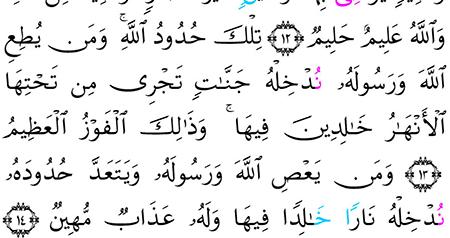 وَٱللَّهُ عَلِيمٌ حَلِيمٌ ۝١٢ تِلْكَ حُدُودُ ٱللَّهِۚ وَمَن يُطِعِ
ٱللَّهَ وَرَسُولَهُۥ نُدْخِلْهُ جَنَّـٰتٍ تَجْرِى مِن تَحْتِهَا
ٱلْأَنْهَـٰرُ خَـٰلِدِينَ فِيهَاۚ وَذَٰلِكَ ٱلْفَوْزُ ٱلْعَظِيمُ
۝١٣ وَمَن يَعْصِ ٱللَّهَ وَرَسُولَهُۥ وَيَتَعَدَّ حُدُودَهُۥ
نُدْخِلْهُ نَارًا خَـٰلِدًا فِيهَا وَلَهُۥ عَذَابٌ مُّهِينٌ ۝١٤